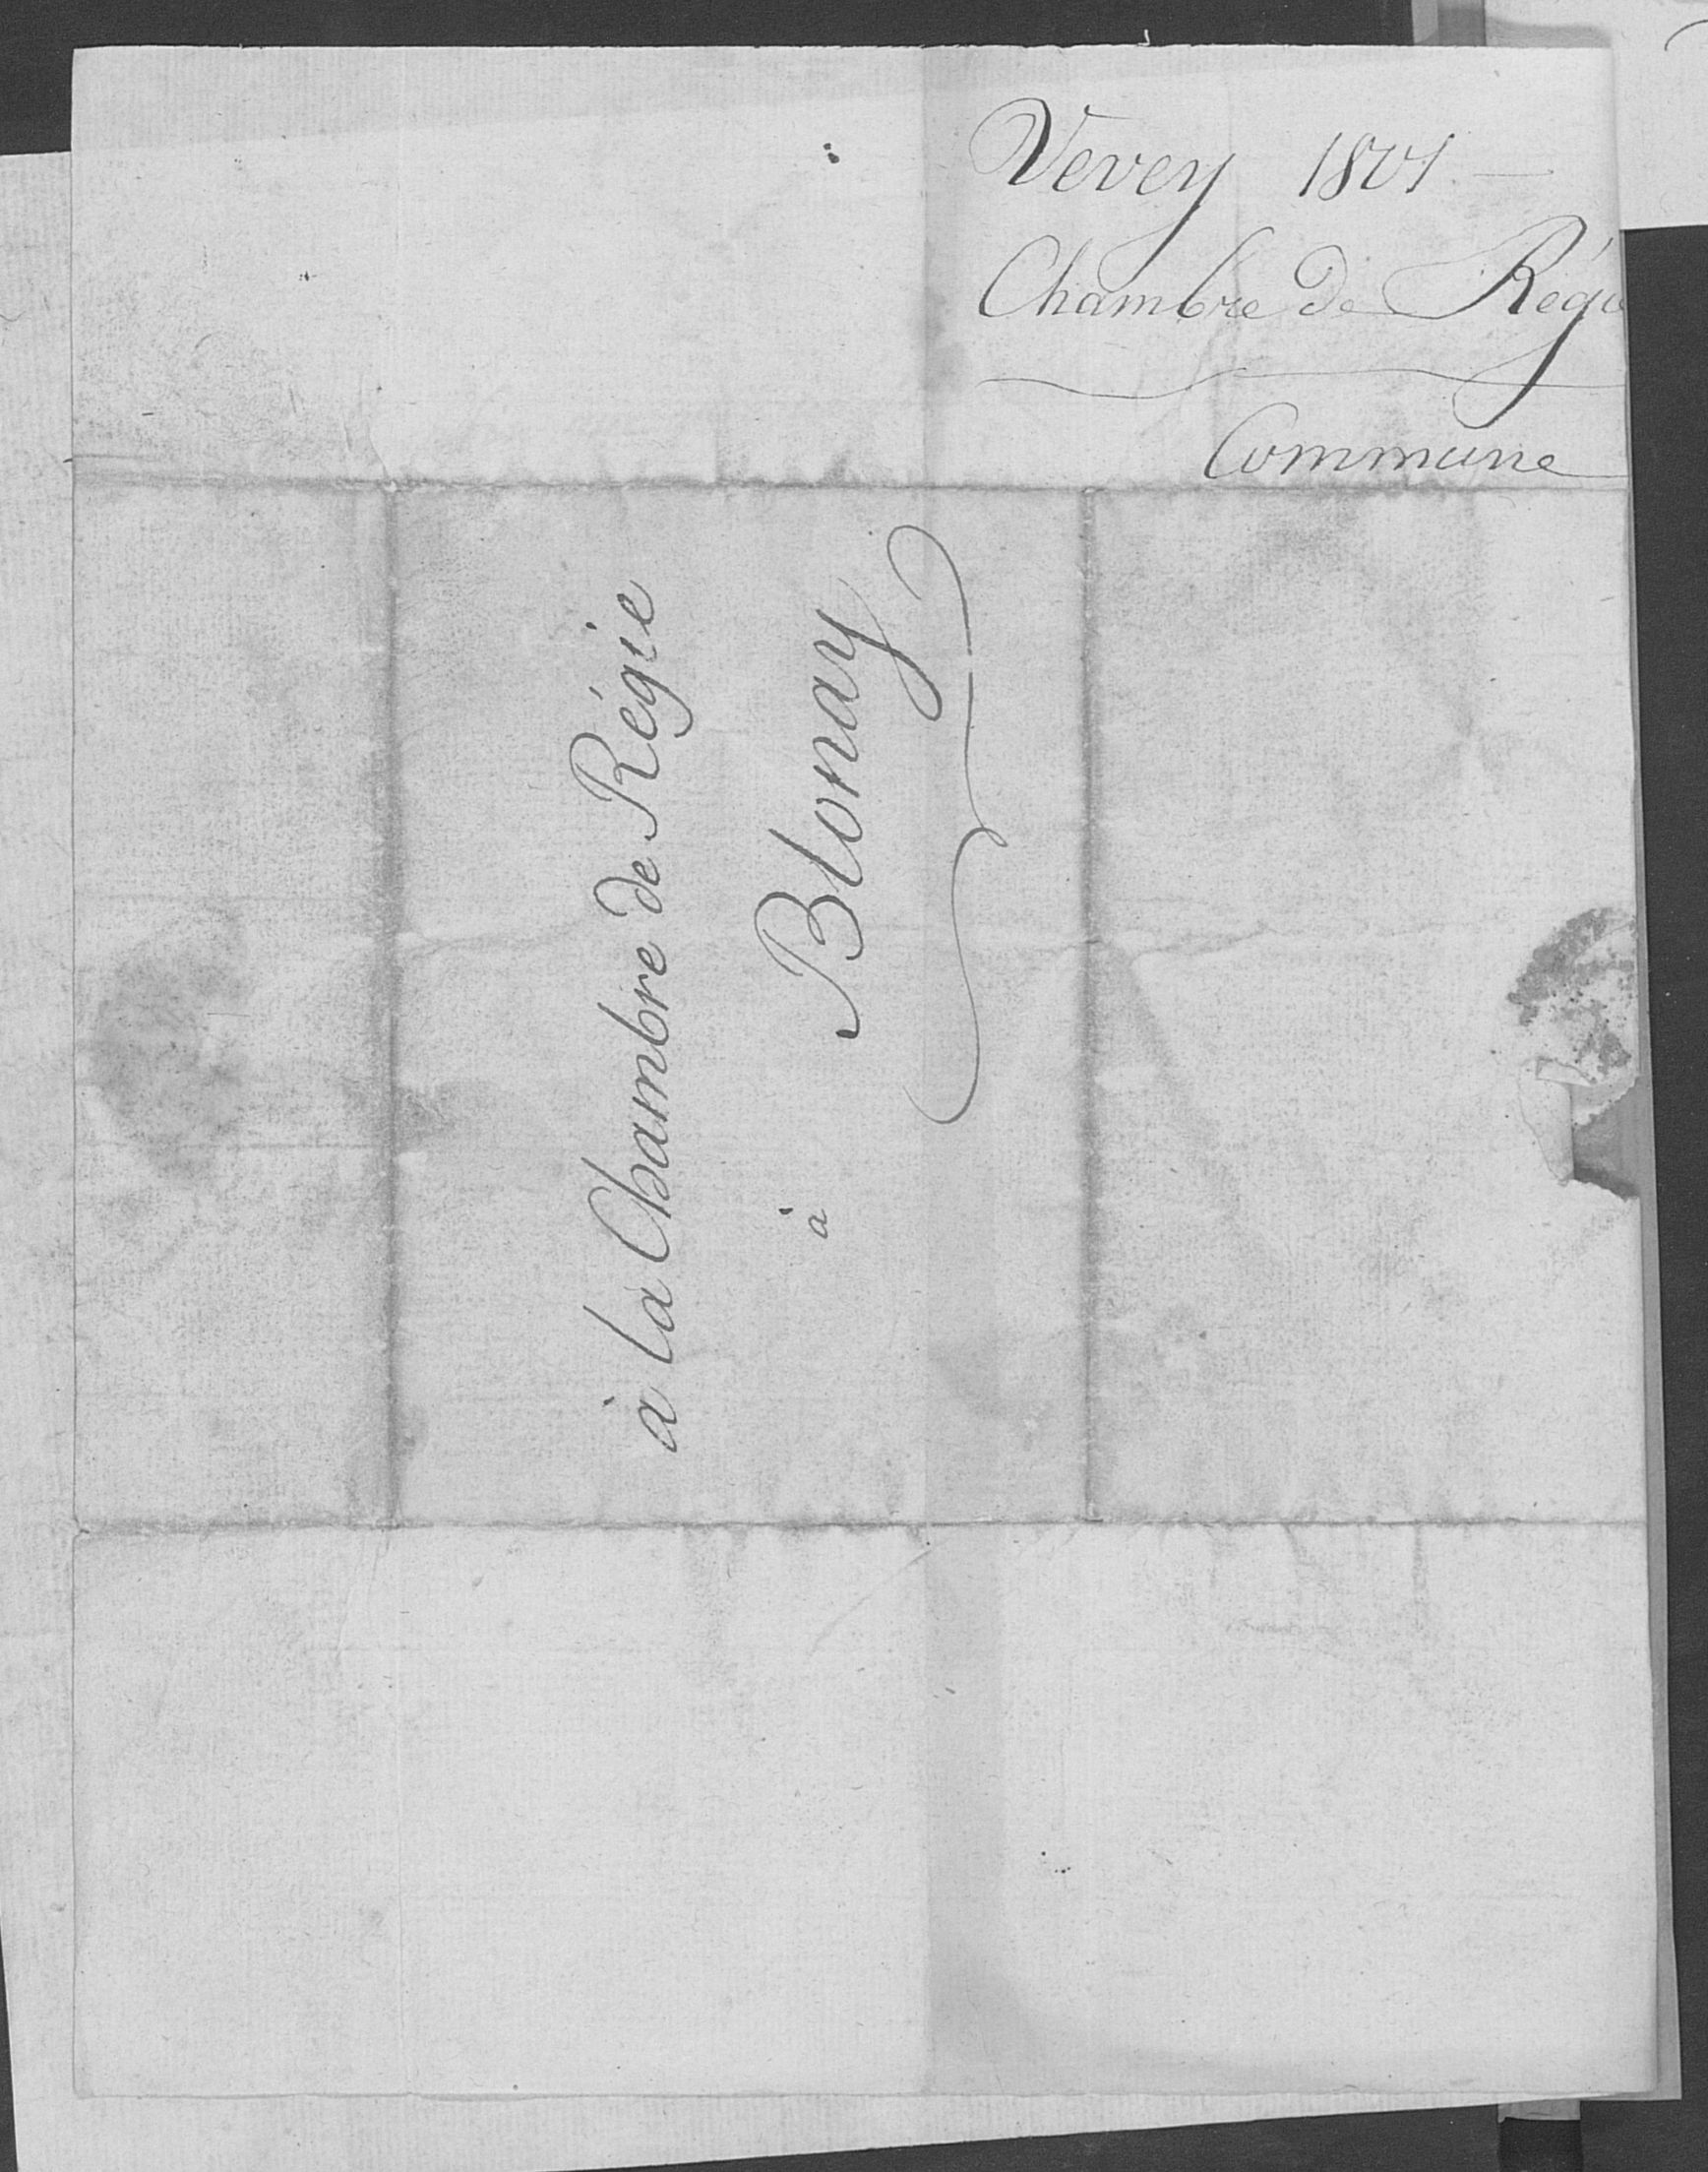 Vevey 1801
Chambre de Régie
Commune
à la Chambre de Régie
à Blonay